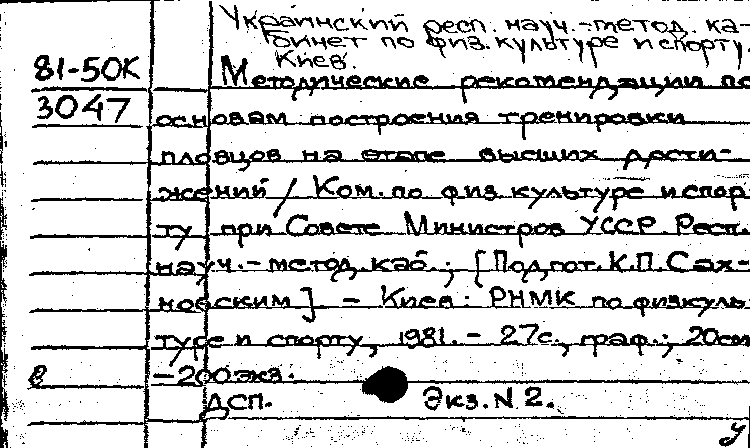 Украинский респ. науч.-метод. ка-
бинет по физ. культуре и спорту.
Киев.
81-50К Методические рекомендации по
3047 основам построения тренировки
пловцов на этапе высших дости-
жений / Ком. по физ культуре и спор
ту при Совете Министров УССР. Респ.
науч.-метод. каб.; [Подгот. К.П. Сах-
новским]. - Киев: РНМК по физкуль-
туре и спорту, 1981. - 27с., граф.; 20см
в -200экз.
ДСП. Экз. N 2.
у